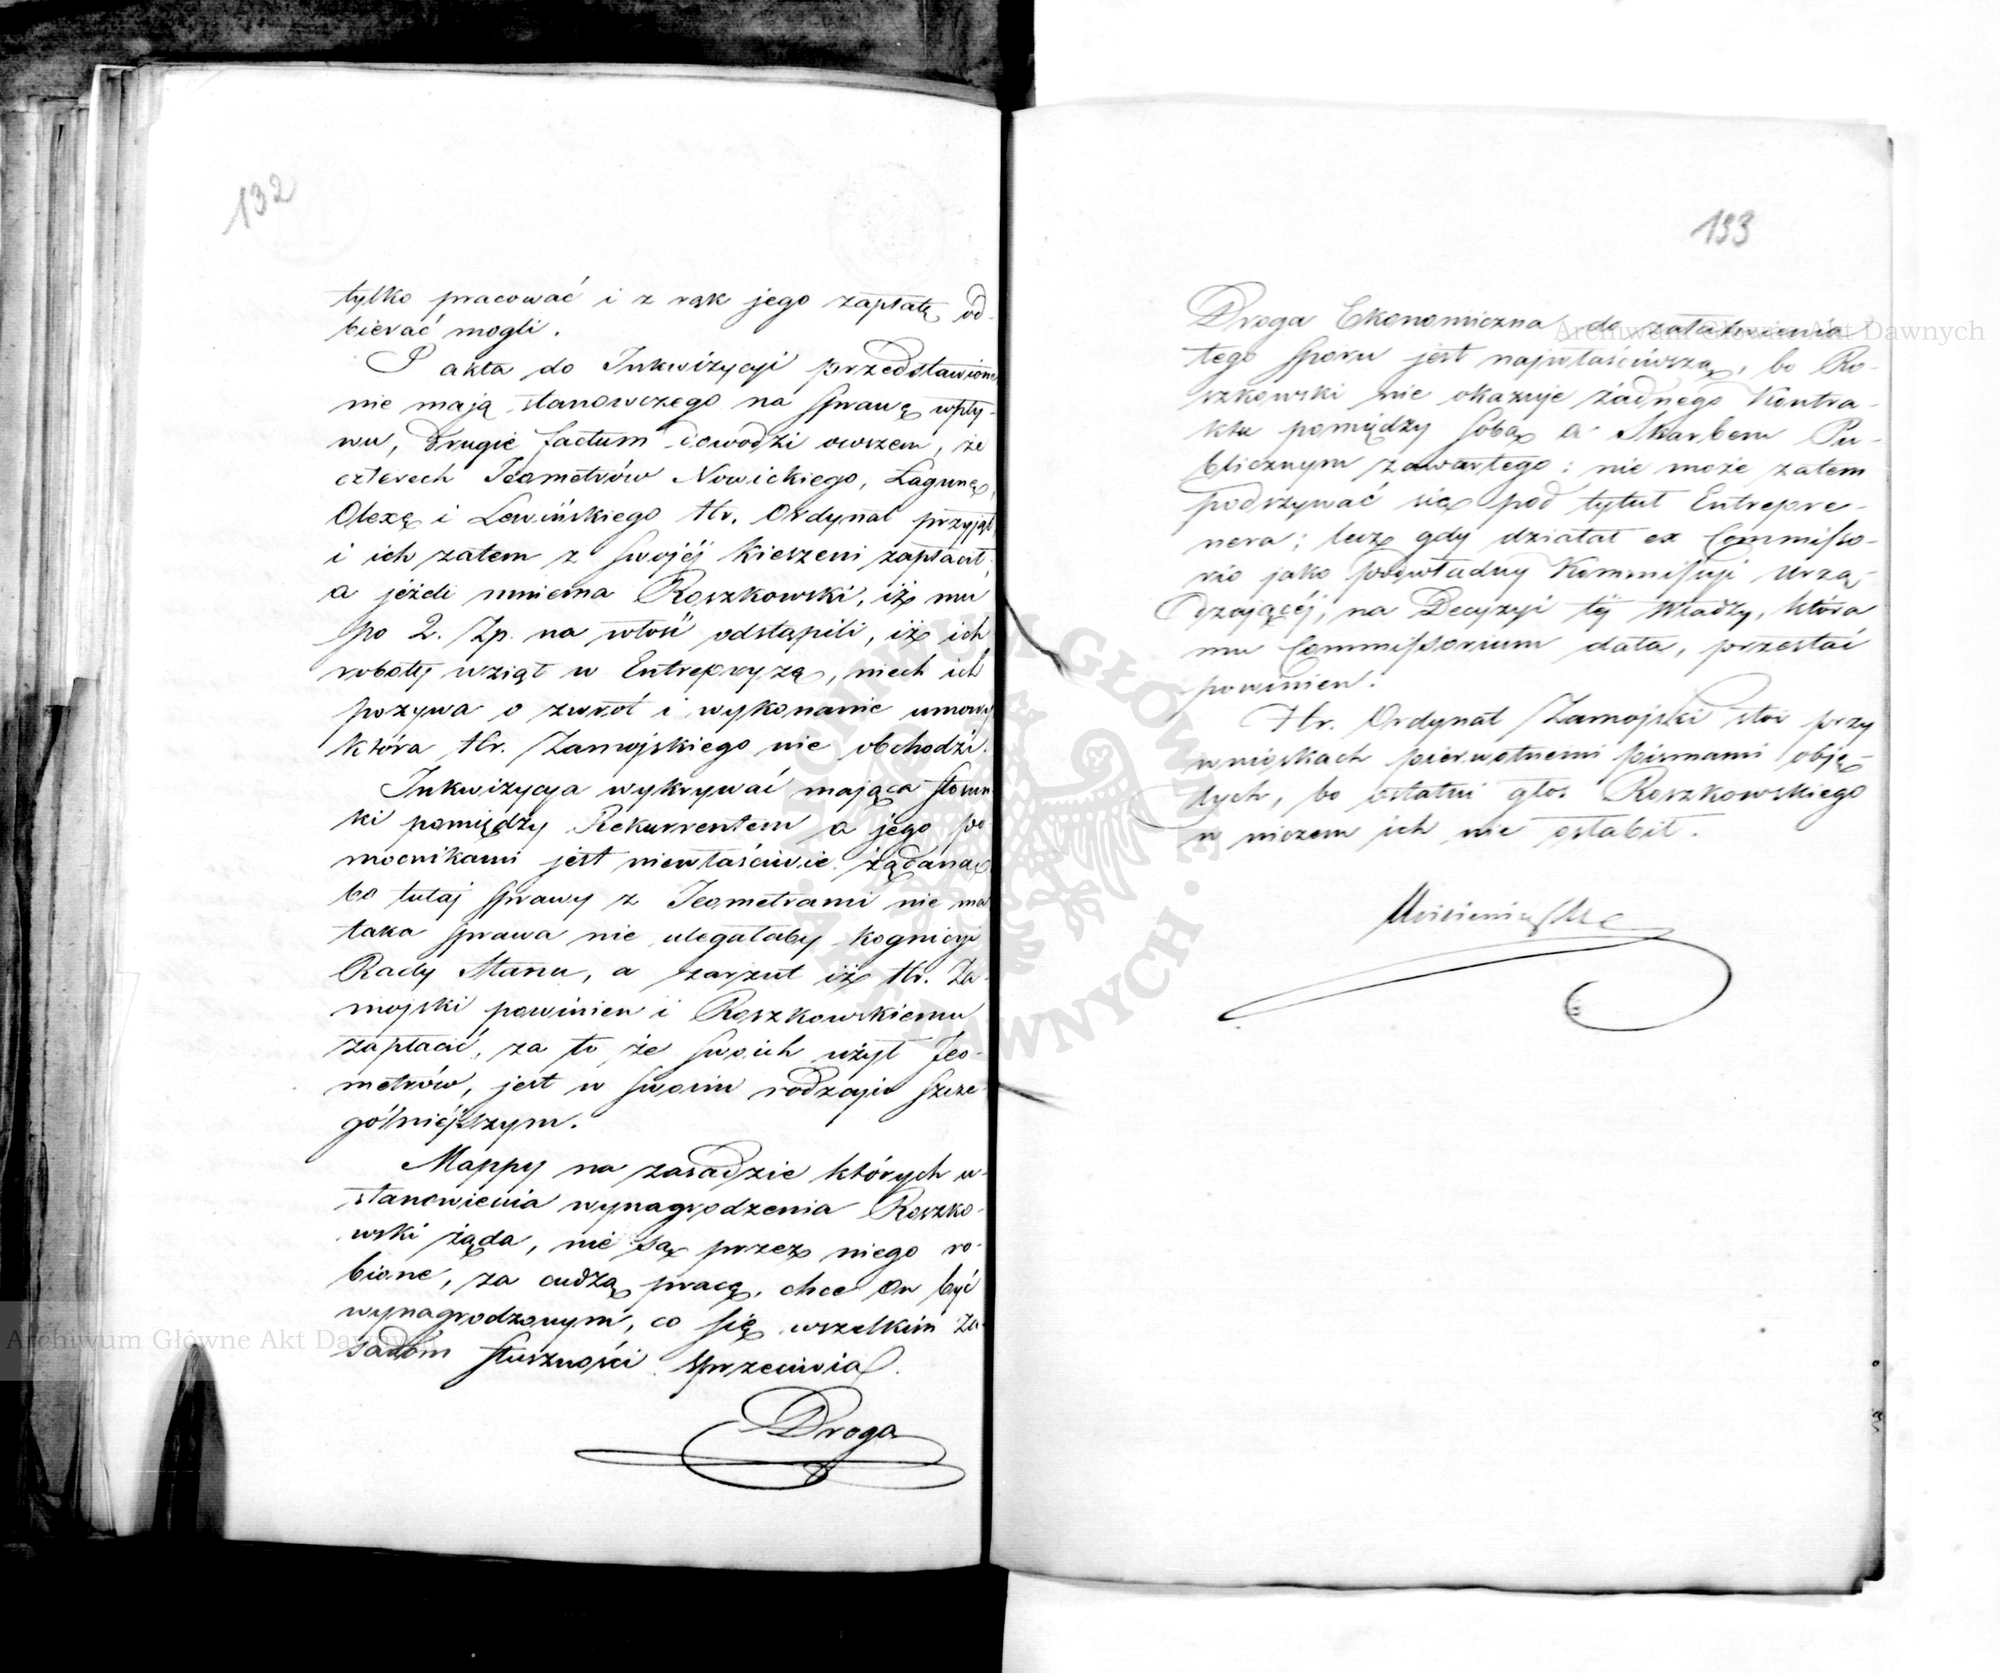 132
tylko pracować i z rąk jego zapłatę od-
bierać mogli.
I akta do Inkwizycyi przedstawione
nie mają stanowczego na sprawę wpły-
wu, drugie factum dowodzi owszem, że
czterech Jeometrów Nowickiego, Łagunę,
Olexę i Lewińskiego Hr. Ordynat przyjął,
i ich zatem z swojéj kieszeni zapłacił,
a jeżeli mniema Roszkowski, iż mu
po 2. Zp. na włość odstąpili, iż ich
roboty wziął w Entrepryzą, niech ich
pozywa o zwrót i wykonanie umowy
która Hr. Zamojskiego nie obchodzi.
Inkwizycya wykrywać mająca stosun
ki pomiędzy Rekurrentem a jego po
mocnikami jest niewłaściwie żądaną
bo tutaj sprawy z Jeometrami nie ma
taka sprawa nie ulegałaby kognicyi
Rady Stanu, a zarzut iż Hr. Za-
mojski powinien i Roszkowskiemu
zapłacić, za to że swoich użył Jeo-
metrów, jest w swoim rodzaju szcze-
gólniéjszym.
Mappy na zasadzie których u-
stanowienia wynagrodzenia Roszko-
wski żąda, nie są przez niego ro-
bione, za cudzą pracę, chce On być
wynagrodzonym, co się wszelkim za-
sadom słuszności sprzeciwia.
Droga
133
Droga Ekonomiczna do załatwienia
tego sporu jest najwłaściwszą, bo Ro-
szkowski nie okazuje żadnego Kontra-
ktu pomiędzy sobą a Skarbem Pu-
blicznym zawartego; nie może zatem
podszywać się pod tytuł Entrepre-
nera; lecz gdy działał ex Commisso-
rio jako podwładny Kommissyi urzą-
dzającéj, na Decyzyi téj Władzy, która
mu Commissorium dała, przestać
powinien.
Hr. Ordynat Zamojski stoi przy
wnioskach pierwotnemi pismami obję-
tych, bo ostatni głos Roszkowskiego
w niczem ich nie osłabił.
Archiwum Główne Akt Dawnych
Archiwum Główne Akt Dawnych
ARCHIWUM GŁÓWNE AKT DAWNYCH